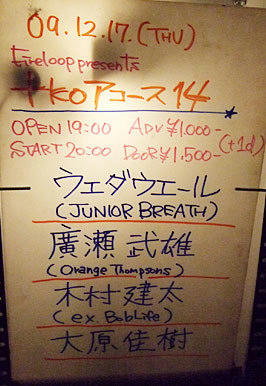 09.12.17.(THU)
Fireloop presents
+koアコース14
OPEN 19:00 ADV ¥1,000-
START 20:00 DOOR ¥1,500- (+1d)
ウエダウエール
(JUNIOR BREATH)
廣瀬 武雄
(Orange Thompsons)
木村建太
(ex BobLife)
大原佳樹